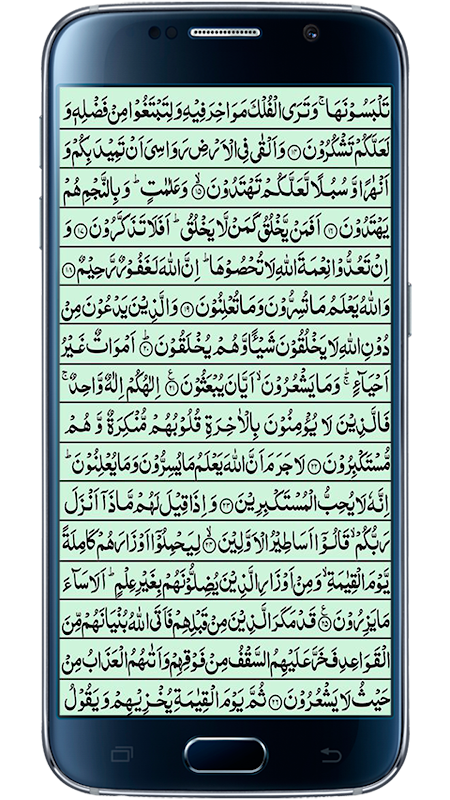 تَلْبَسُوْنَهَا ۚ وَتَرَى الْفُلْكَ مَوَاخِرَ فِيْهِ وَلِتَبْتَغُوْا مِنْ فَضْلِهٖ وَ
لَعَلَّكُمْ تَشْكُرُوْنَ ﴿۱۴﴾ وَاَلْقٰى فِى الْاَرْضِ رَوَاسِىَ اَنْ تَمِيْدَ بِكُمْ وَ
اَنْهٰرًا وَّسُبُلًا لَّعَلَّكُمْ تَهْتَدُوْنَ ﴿۱۵﴾ وَعَلٰمٰتٍ ؕ وَبِالنَّجْمِ هُمْ
يَهْتَدُوْنَ ﴿۱۶﴾ اَفَمَنْ يَّخْلُقُ كَمَنْ لَّا يَخْلُقُ ؕ اَفَلَا تَذَكَّرُوْنَ ﴿۱۷﴾ وَ
اِنْ تَعُدُّوْا نِعْمَةَ اللّٰهِ لَا تُحْصُوْهَا ؕ اِنَّ اللّٰهَ لَغَفُوْرٌ رَّحِيْمٌ ﴿۱۸﴾
وَاللّٰهُ يَعْلَمُ مَا تُسِرُّوْنَ وَمَا تُعْلِنُوْنَ ﴿۱۹﴾ وَالَّذِيْنَ يَدْعُوْنَ مِنْ
دُوْنِ اللّٰهِ لَا يَخْلُقُوْنَ شَيْـًٔا وَّهُمْ يُخْلَقُوْنَ ؕ ﴿۲۰﴾ اَمْوَاتٌ غَيْرُ
اَحْيَآءٍ ۚ وَمَا يَشْعُرُوْنَ ۙ اَيَّانَ يُبْعَثُوْنَ ﴿۲۱﴾ اِلٰهُكُمْ اِلٰهٌ وَّاحِدٌ ۚ
فَالَّذِيْنَ لَا يُؤْمِنُوْنَ بِالْاٰخِرَةِ قُلُوْبُهُمْ مُّنْكِرَةٌ وَّهُمْ
مُّسْتَكْبِرُوْنَ ﴿۲۲﴾ لَا جَرَمَ اَنَّ اللّٰهَ يَعْلَمُ مَا يُسِرُّوْنَ وَمَا يُعْلِنُوْنَ ؕ
اِنَّهٗ لَا يُحِبُّ الْمُسْتَكْبِرِيْنَ ﴿۲۳﴾ وَاِذَا قِيْلَ لَهُمْ مَّاذَاۤ اَنْزَلَ
رَبُّكُمْ ۙ قَالُوْۤا اَسَاطِيْرُ الْاَوَّلِيْنَ ۙ ﴿۲۴﴾ لِيَحْمِلُوْۤا اَوْزَارَهُمْ كَامِلَةً
يَّوْمَ الْقِيٰمَةِ ۙ وَمِنْ اَوْزَارِ الَّذِيْنَ يُضِلُّوْنَهُمْ بِغَيْرِ عِلْمٍ ؕ اَلَا سَآءَ
مَا يَزِرُوْنَ ﴿۲۵﴾ قَدْ مَكَرَ الَّذِيْنَ مِنْ قَبْلِهِمْ فَاَتَى اللّٰهُ بُنْيَانَهُمْ مِّنَ
الْقَوَاعِدِ فَخَرَّ عَلَيْهِمُ السَّقْفُ مِنْ فَوْقِهِمْ وَاَتٰىهُمُ الْعَذَابُ مِنْ
حَيْثُ لَا يَشْعُرُوْنَ ﴿۲۶﴾ ثُمَّ يَوْمَ الْقِيٰمَةِ يُخْزِيْهِمْ وَيَقُوْلُ